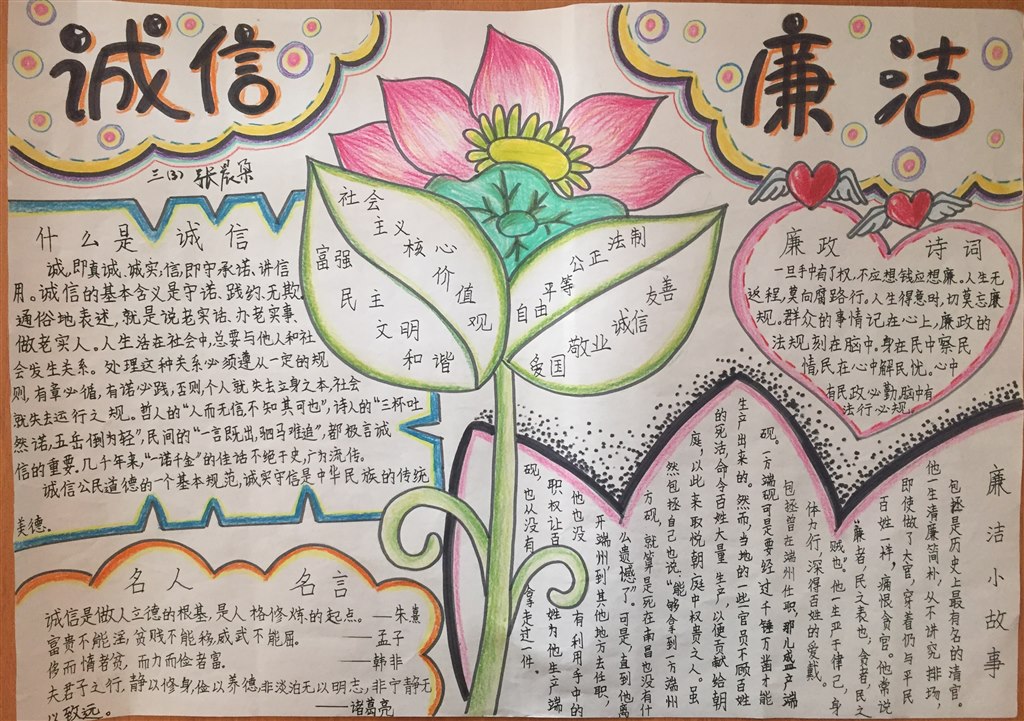 诚信
廉洁
三(3) 张宸朵
什么是 诚信
诚,即真诚、诚实;信,即守承诺、讲信
用。诚信的基本含义是守诺、践约、无欺。
通俗地表述,就是说老实话、办老实事、
做老实人。人生活在社会中,总要与他人和社
会发生关系。处理这种关系必须遵从一定的规
则,有章必循,有诺必践,否则,个人就失去立身之本,社会
就失去运行之规。哲人的“人而无信不知其可也”,诗人的“三杯吐
然诺,五岳倒为轻”,民间的“一言既出,驷马难追”,都极言诚
信的重要。几千年来,“一诺千金”的佳话不绝于史,广为流传。
诚信公民道德的一个基本规范,诚实守信是中华民族的传统
美德。
名人 名言
诚信是做人立德的根基,是人格修炼的起点。——朱熹
富贵不能淫,贫贱不能移,威武不能屈。——孟子
侈而惰者贫,而力而俭者富。——韩非
夫君子之行,静以修身,俭以养德,非淡泊无以明志,非宁静无
以致远。——诸葛亮
社会
主义
核心
价值
观
富强
民主
文明
和谐
自由
平等
公正
法制
爱国
敬业
诚信
友善
廉政 诗词
一旦手中有了权,不应想钱应想廉。人生无
返程,莫向腐路行。人生得意时,切莫忘廉
规。群众的事情记在心上,廉政的
法规,刻在脑中。身在民中察民
情,民在心中解民忧。心中
有民政必勤,脑中有
法行必规。
廉洁小故事
包拯是历史上最有名的清官。
他一生清廉简朴,从不讲究排场,
即使做了大官,穿着仍与平民
百姓一样,痛恨贪官。他常说
“廉者,民之表也;贪者,民之
贼也”。他一生严于律己,身
体力行,深得百姓的爱戴。
包拯曾在端州任职,那儿盛产端
砚,一方端砚可是要经过千锤万凿才能
生产出来的。然而,当地的一些官员不顾百姓
的死活,命令百姓大量生产,以便贡献给朝
庭,以此来取悦朝庭中权贵之人。虽
然包拯自己也说,“能够拿到一方端州
方砚,就算是死在南昌也没有什
么遗憾了”。可是,一直到他离
开端州,到其他地方去任职,
他也没有利用手中的
职权让百姓为他生产端
砚,也从没有拿走过一件。